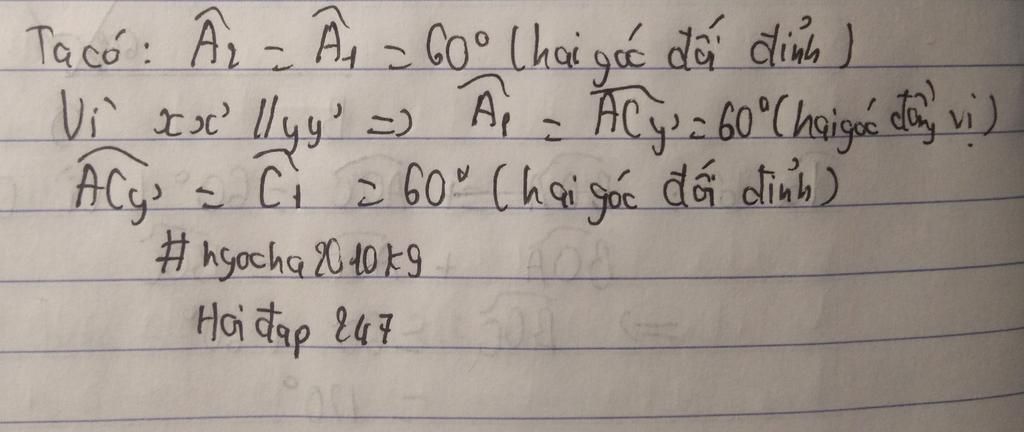 Ta có: Â₂ = Â₁ = 60° (hai góc đối đỉnh)
Vì xx' // yy' => Â₁ = ACy' = 60° (hai góc đồng vị)
ACy' = Ĉ₁ = 60° (hai góc đối đỉnh)
# ngocha2010k9
Hoi đap 247